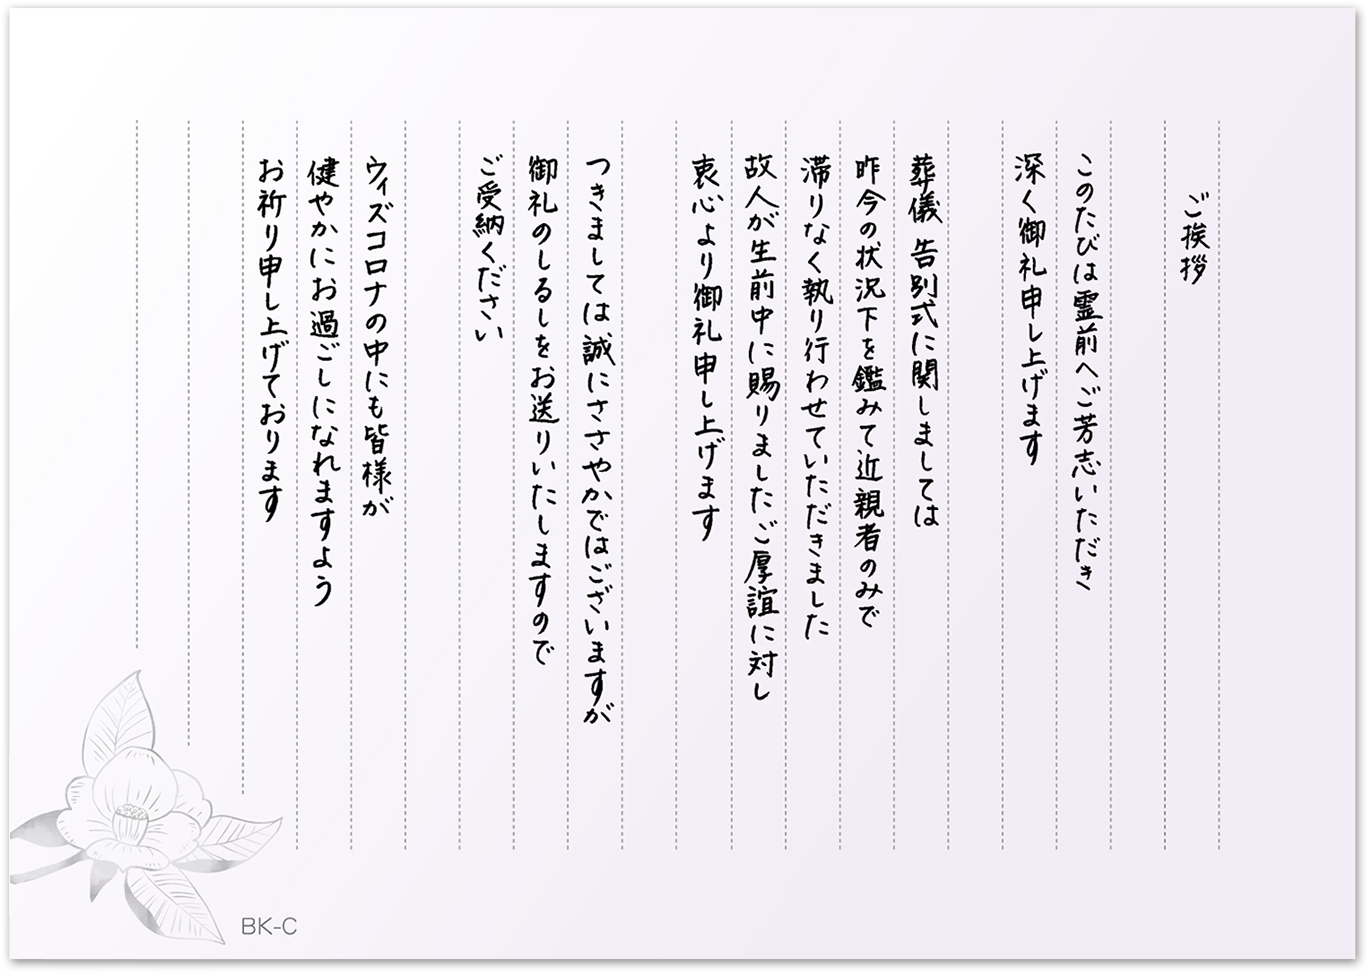 ご挨拶
このたびは霊前へご芳志いただき
深く御礼申し上げます
葬儀 告別式に関しましては
昨今の状況下を鑑みて近親者のみで
滞りなく執り行わせていただきました
故人が生前中に賜りましたご厚誼に対し
衷心より御礼申し上げます
つきましては誠にささやかではございますが
御礼のしるしをお送りいたしますので
ご受納ください
ウィズコロナの中にも皆様が
健やかにお過ごしになれますよう
お祈り申し上げております
BK-C